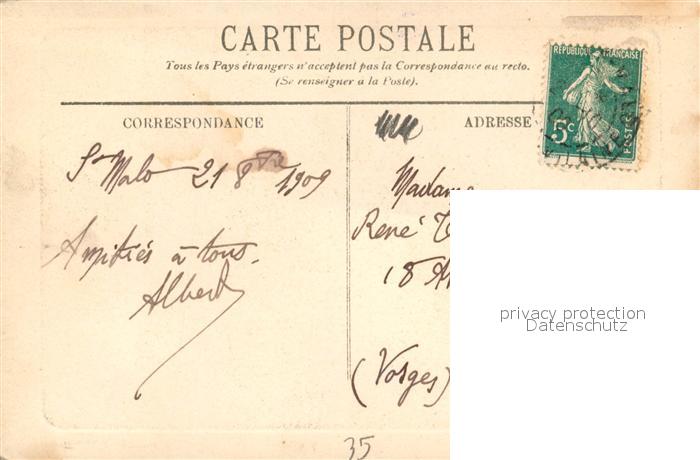 CARTE POSTALE
Tous les Pays étrangers n'acceptent pas la Correspondance au recto.
(Se renseigner à la Poste).
CORRESPONDANCE
ADRESSE
REPUBLIQUE FRANÇAISE
5c
POSTES
St Malo 21 8bre 1909
Amitiés à tous.
Albert
Madame
René
18
(Vosges)
privacy protection
Datenschutz
35